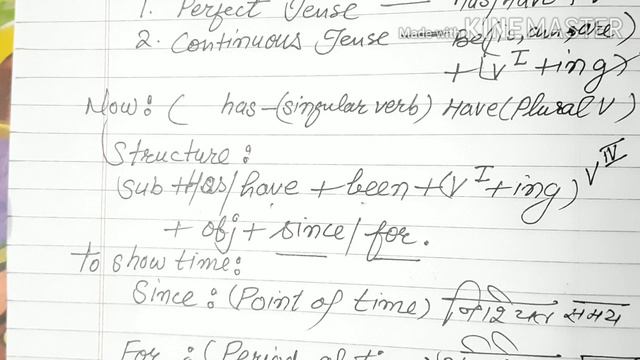 1. Perfect Tense — has/have +
2. Continuous Tense — Be(is, am, are)
Made with KINEMASTER
+ (V I + ing)
Now: ( has - (singular verb) Have (Plural V)
Structure:
Sub + Has/have + been + (V I + ing) V IV
+ obj + since / for.
to show time:
Since: (Point of time) निश्चित समय
For: (Period of